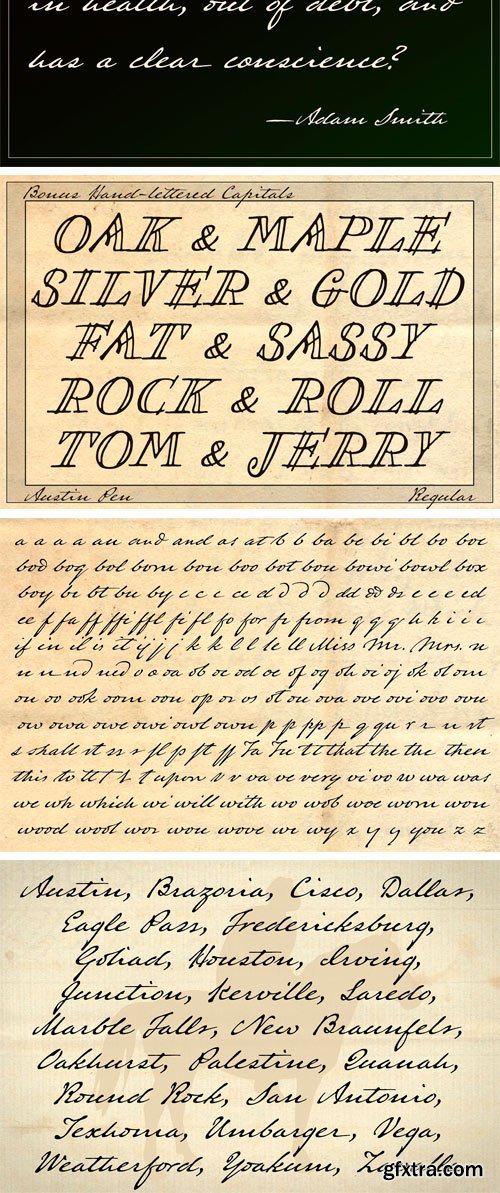 in health, out of debt, and
has a clear conscience?
—Adam Smith
Bonus Hand-lettered Capitals
OAK & MAPLE
SILVER & GOLD
FAT & SASSY
ROCK & ROLL
TOM & JERRY
Austin Pen
Regular
a a a a au and and as at b b ba be bi bl bo boe
bod bog bol born bou boo bot bou bowi bowl box
boy br bt bu by c c c cc d d d d dd dd dr e e e e ed
ee f fa ff ffi ffl fi fl fo for fr from g g g h h i i i
if in il is it ij j j k k l l le ll Miss Mr. Mrs. n
n n nd ned o o oa ob oc od oe of og oh oi oj ok ol om
on oo ook oom oon op or os ot ou ova ove ovi ovo ovu
ow owa owe owi owl own p p pp p q qu r r rt
s shall st ss s fl p st ff Ta Tu tt that the the then
this to tt t t t upon v v va ve very vi vo w wa was
we wh which wi will with wo wob woe worn wou
wood wool wor wou wove wi wy x y y you z z
Austin, Brazoria, Cisco, Dallas,
Eagle Pass, Fredericksburg,
Goliad, Houston, Irving,
Junction, Kerville, Laredo,
Marble Falls, New Braunfels,
Oakhurst, Palestine, Quanah,
Round Rock, San Antonio,
Texhoma, Umbarger, Vega,
Weatherford, Yoakum,
gfxtra.com